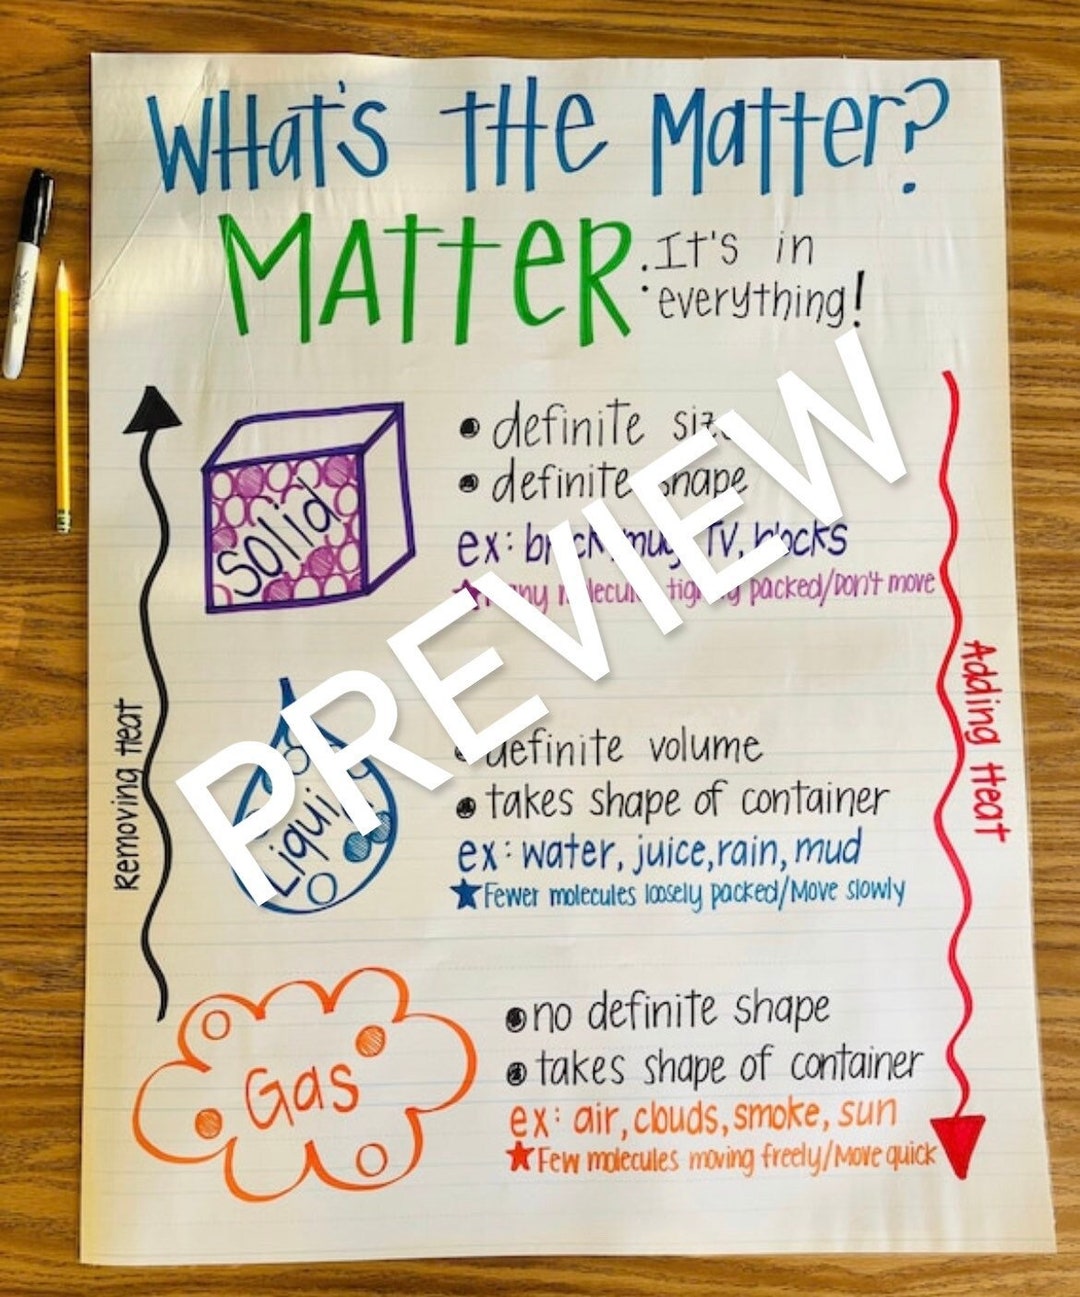 WHat's tHe Matter?
MAtteR: It's in
everything!
Solid
• definite
• definite shape
ex: brick, mug, TV, blocks
★ Many molecules tightly packed/Don't move
Removing Heat
Adding Heat
PREVIEW
Liquid
• definite volume
• takes shape of container
ex: water, juice, rain, mud
★ Fewer molecules loosely packed/Move slowly
Gas
• no definite shape
• takes shape of container
ex: air, clouds, smoke, sun
★ Few molecules moving freely/Move quick